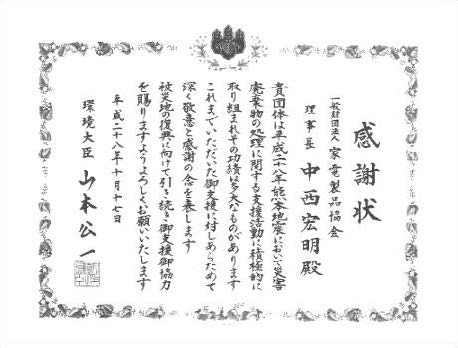 感謝状
一般財団法人 家電製品協会
理事長 中西宏明殿
貴団体は平成二十八年熊本地震において災害
廃棄物の処理に関する支援活動に積極的に
取り組まれその功績は多大なものがあります
これまでいただいた御支援に対しあらためて
深く敬意と感謝の念を表します
被災地の復興に向けて引き続き御支援御協力
を賜りますようよろしくお願いいたします
平成二十八年十月十七日
環境大臣 山本公一